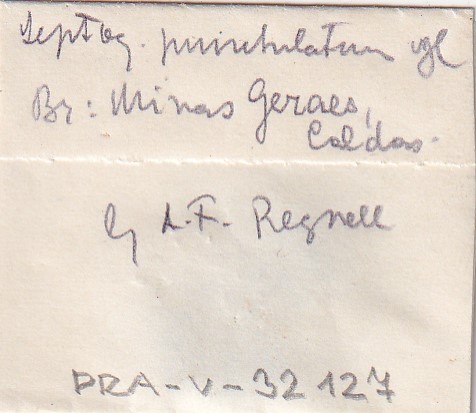 Leptog. punctulatum vgl
Br: Minas Geraes,
Caldas.
lg A.F. Regnell
PRA-V-32127